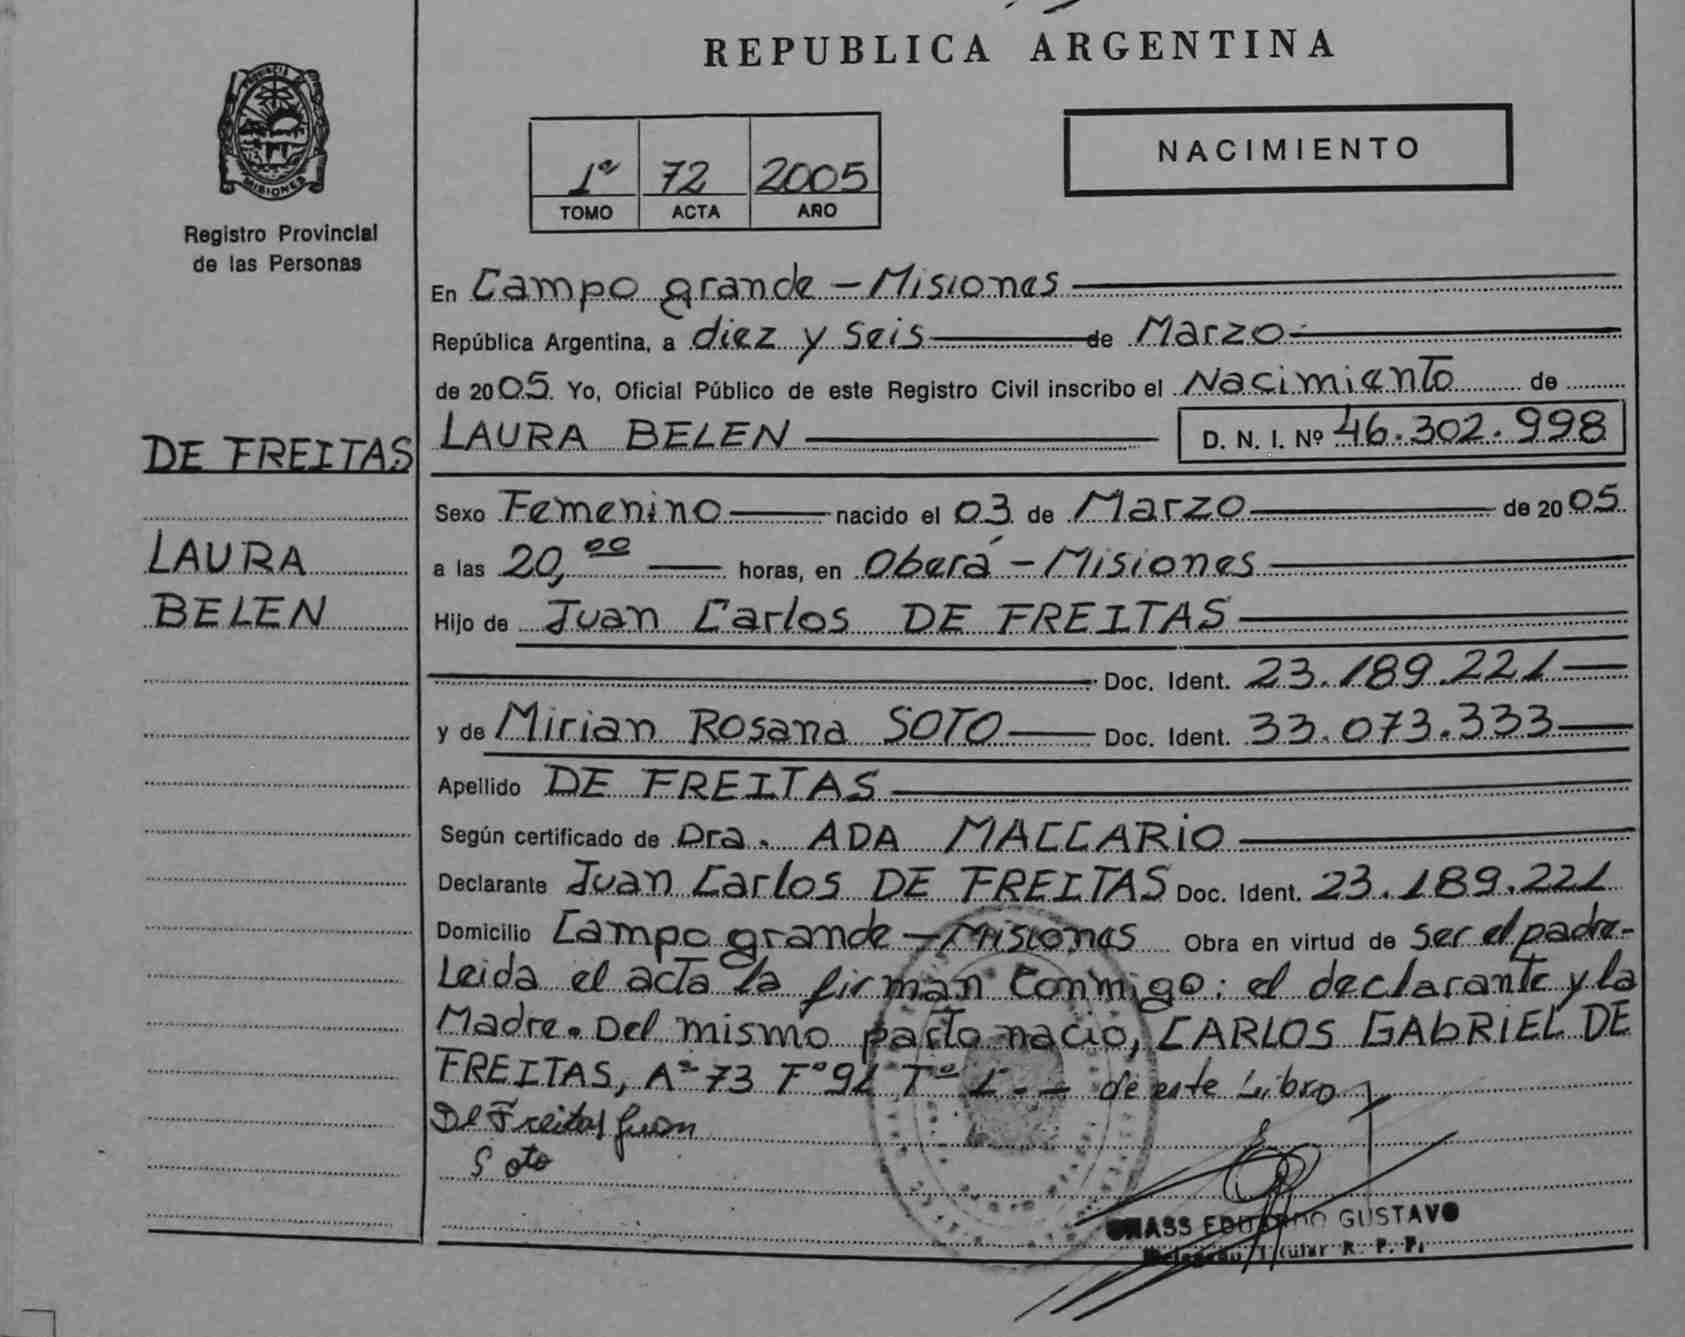 REPUBLICA ARGENTINA
PROVINCIA DE
MISIONES
Registro Provincial
de las Personas
1º 72 2005
TOMO ACTA AÑO
NACIMIENTO
En Campo grande - Misiones
República Argentina, a diez y seis de Marzo
de 2005. Yo, Oficial Público de este Registro Civil inscribo el Nacimiento de
DE FREITAS
LAURA BELEN D. N. I. Nº 46.302.998
Sexo Femenino nacido el 03 de Marzo de 2005
LAURA
a las 20,00 horas, en Oberá - Misiones
BELEN
Hijo de Juan Carlos DE FREITAS
Doc. Ident. 23.189.221
y de Mirian Rosana SOTO Doc. Ident. 33.073.333
Apellido DE FREITAS
Según certificado de Dra. ADA MACCARIO
Declarante Juan Carlos DE FREITAS Doc. Ident. 23.189.221
Domicilio Campo grande - Misiones Obra en virtud de ser el padre-
Leida el acta la firman conmigo: el declarante y la
Madre. Del mismo parto nacio, CARLOS GABRIEL DE
FREITAS, Aº 73 Fº 92 Tº 1 - - de este Libro
De Freitas Juan
Soto
GUSTAVO
R. P. P.